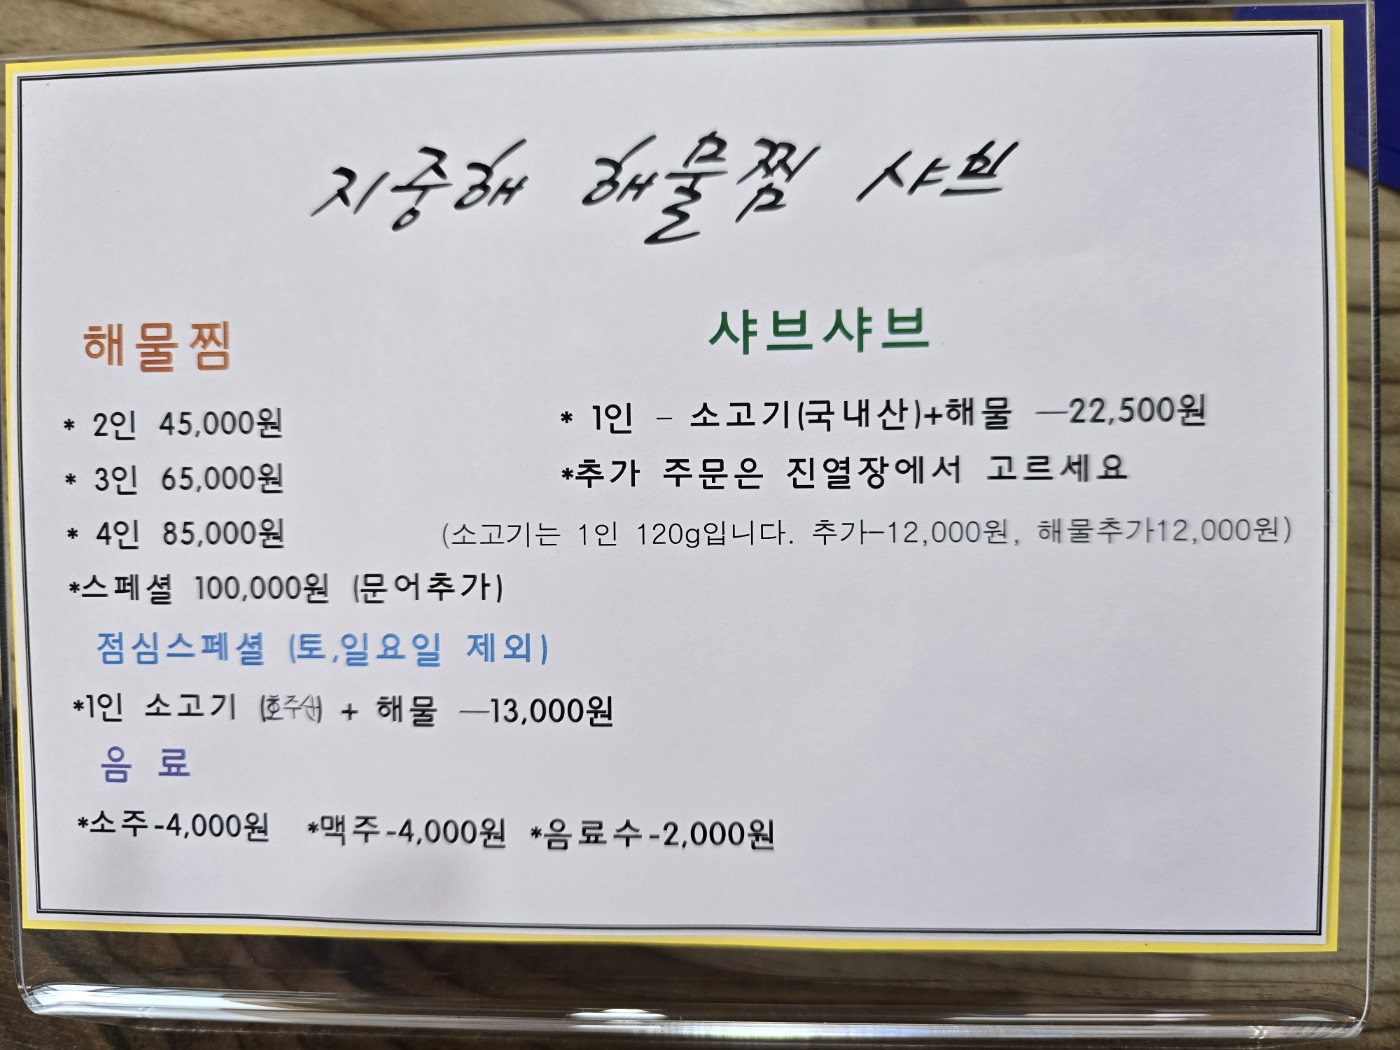 지중해 해물찜 샤브
해물찜
* 2인 45,000원
* 3인 65,000원
* 4인 85,000원
*스페셜 100,000원 (문어추가)
점심스페셜 (토,일요일 제외)
*1인 소고기 (호주산) + 해물 —13,000원
음 료
*소주-4,000원 *맥주-4,000원 *음료수-2,000원
샤브샤브
* 1인 - 소고기(국내산)+해물 —22,500원
*추가 주문은 진열장에서 고르세요
(소고기는 1인 120g입니다. 추가-12,000원, 해물추가12,000원)